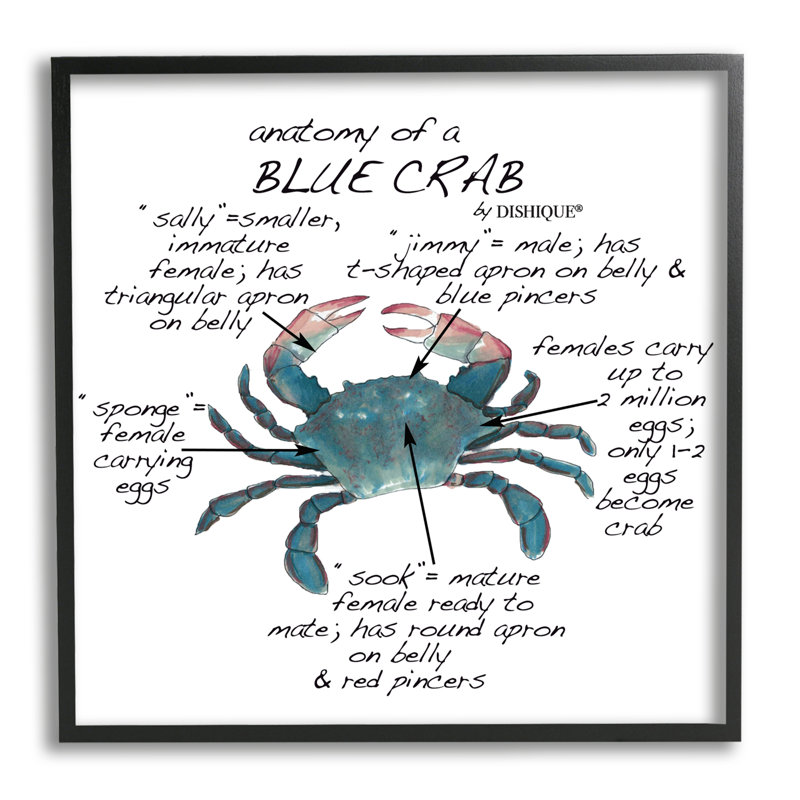 anatomy of a
BLUE CRAB
by DISHIQUE®
"sally"=smaller,
immature
female; has
triangular apron
on belly
"jimmy"= male; has
t-shaped apron on belly &
blue pincers
females carry
up to
2 million
eggs;
only 1-2
eggs
become
crab
"sponge"=
female
carrying
eggs
"sook"= mature
female ready to
mate; has round apron
on belly
& red pincers